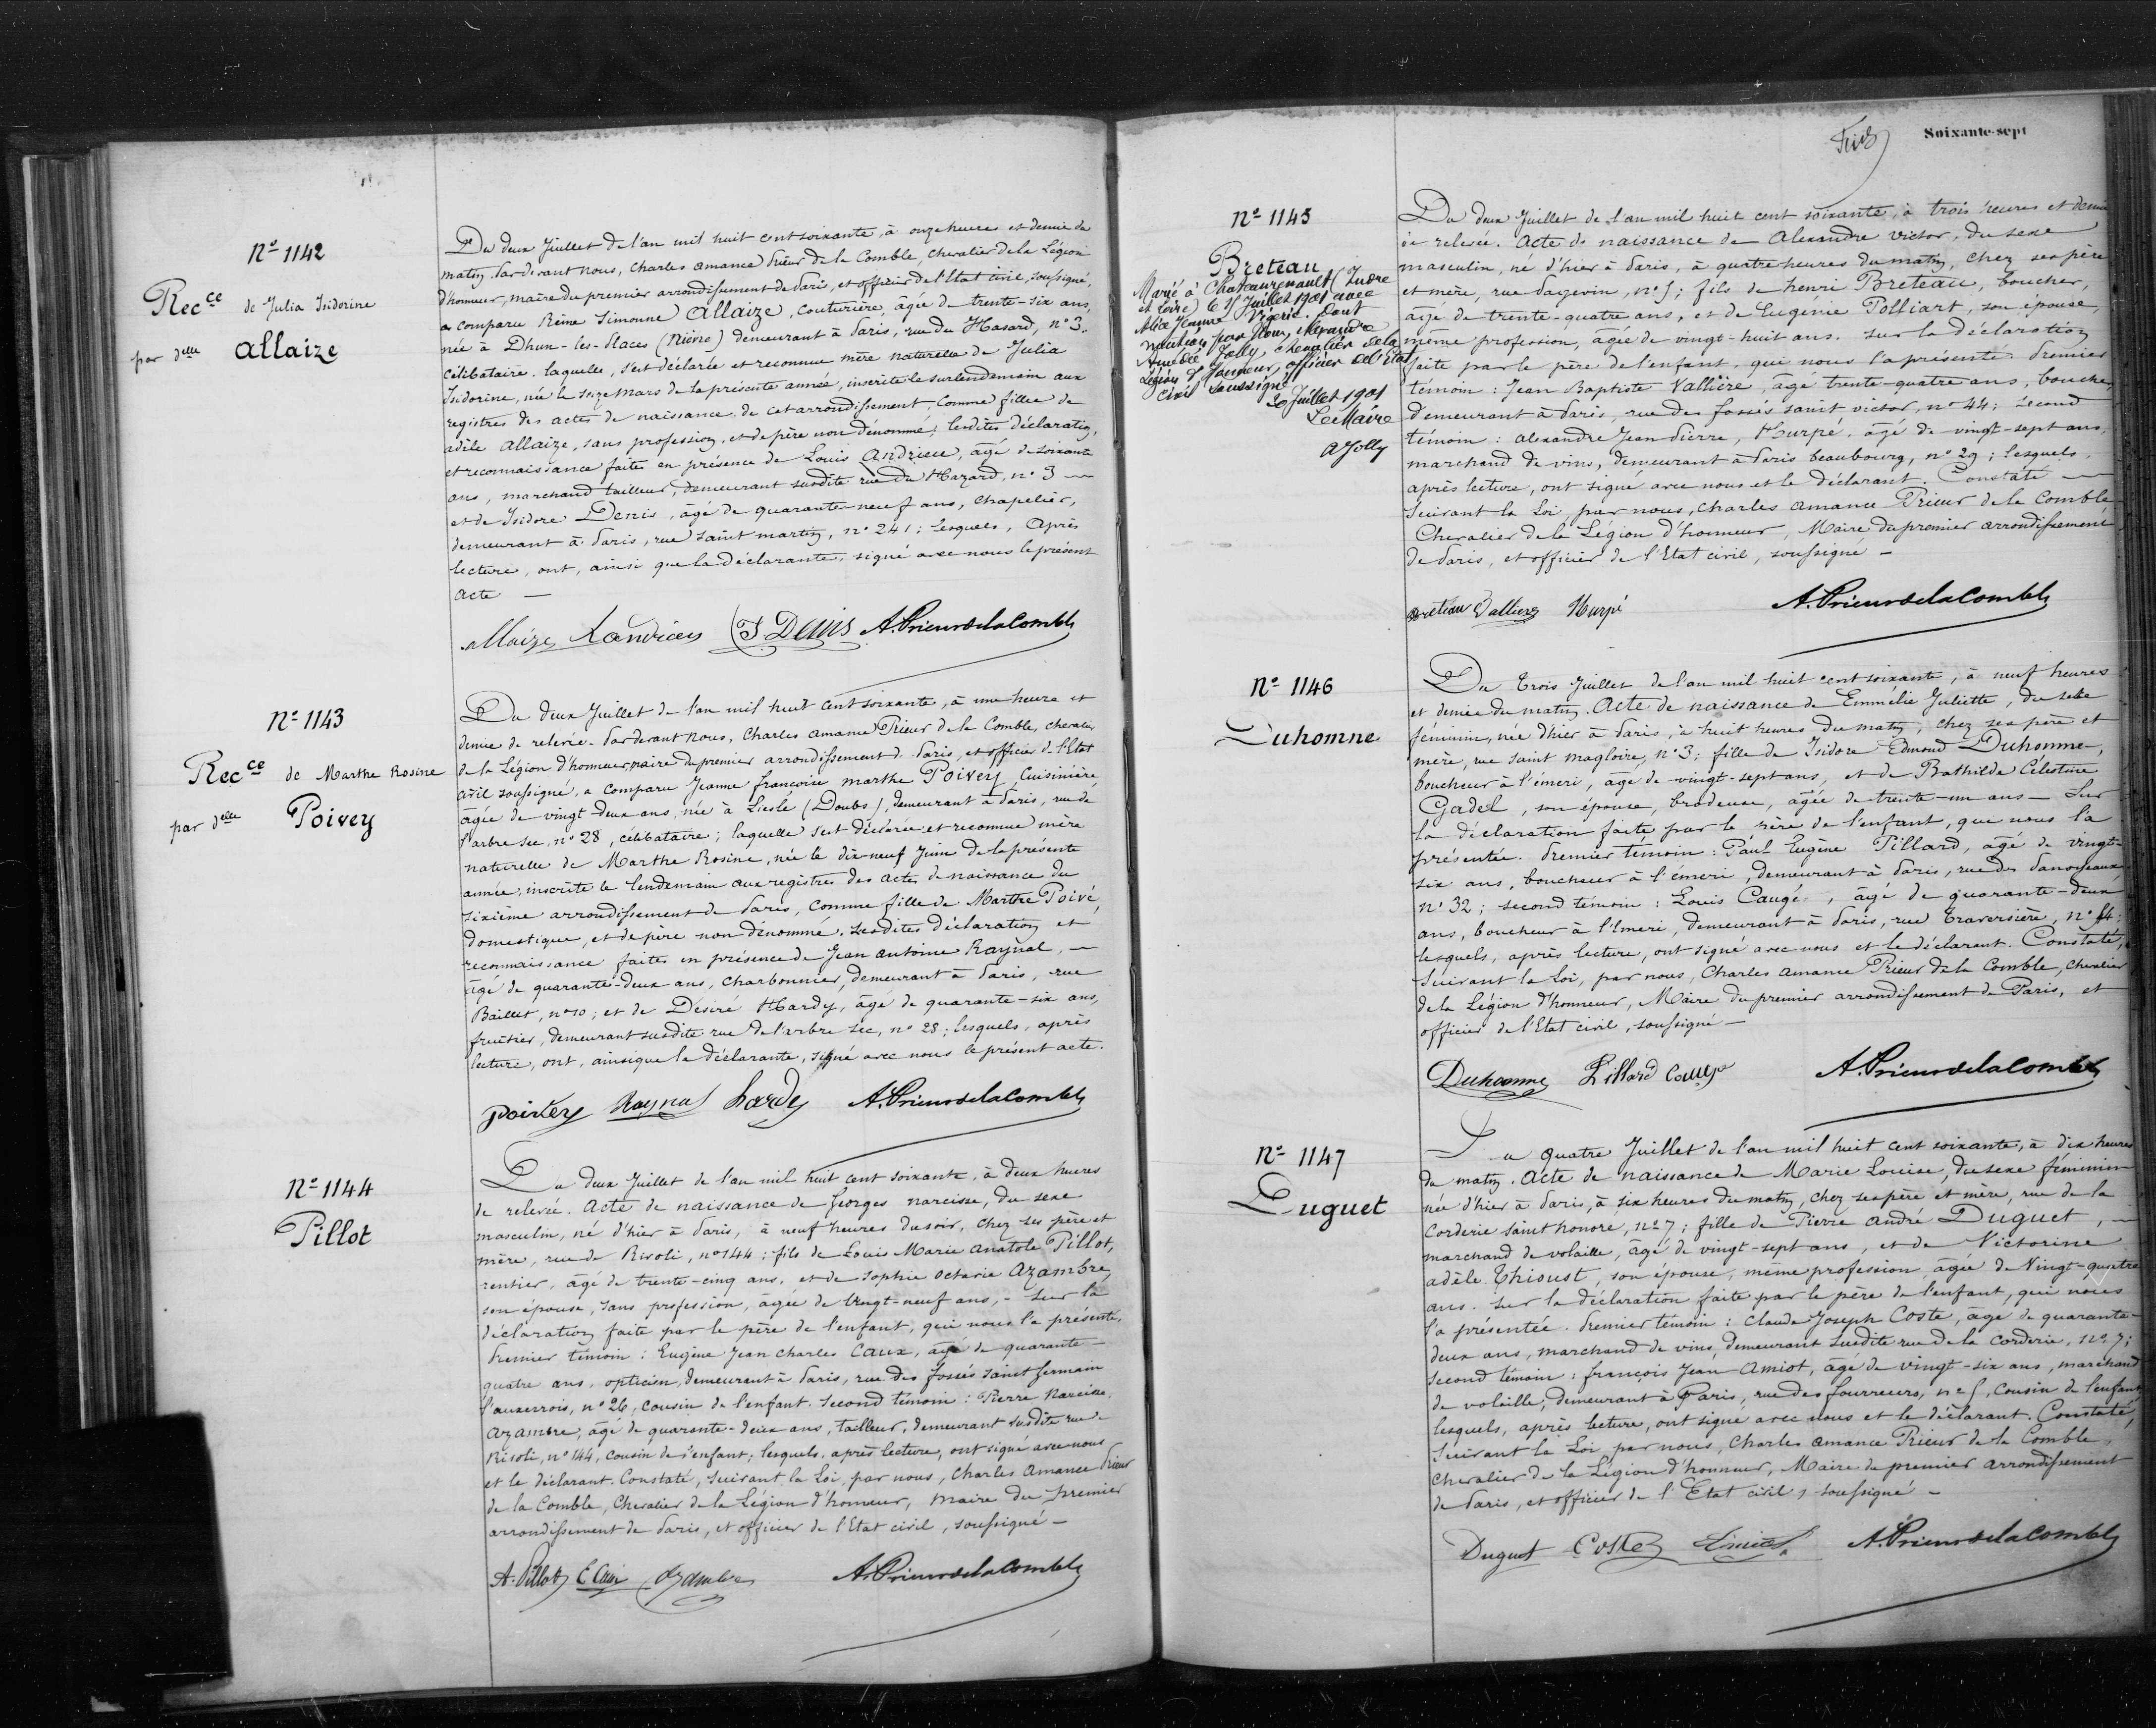 Nº 1142
Recce de Julia Isidorine
par delle Allaize
Du deux Juillet de l'an mil huit cent soixante à onze heures et demie du
matin. Pardevant nous, Charles amance Prieur de la Comble, chevalier de la Légion
d'honneur, maire du premier arrondissement de Paris, et officier de l'Etat civil, soussigné,
a comparu Reine Simonne Allaize, couturière, âgée de trente-six ans,
née à Dhun-les-Places (Nièvre) demeurant à Paris, rue du Hasard, nº 3.
célibataire. laquelle, s'est déclarée et reconnue mère naturelle de Julia
Isidorine, née le seize Mars de la présente année, inscrite le surlendemain aux
registres des actes de naissance de cet arrondissement, comme fille de
adèle Allaize, sans profession, et de père non dénommé; lesdites déclaration,
et reconnaissance faites en présence de Louis Andrieu, âgé de soixante
ans, marchand tailleur, demeurant susdite rue du Hazard, nº 3 —
et de Isidore Denis, âgé de quarante-neuf ans, chapelier,
demeurant à Paris, rue saint martin, nº 241; lesquels, Après
lecture, ont, ainsi que la déclarante, signé avec nous le présent
acte —
allaize Landrieu I Denis A. Prieur de la Comble
Nº 1143
Recce de Marthe Rosine
par delle Poivey
Du deux Juillet de l'an mil huit cent soixante, à une heure et
demie de relevée. Pardevant nous, Charles amance Prieur de la Comble, chevalier
de la Légion d'honneur, maire du premier arrondissement de Paris, et officier de l'Etat
civil soussigné, a comparu Jeanne françoise marthe Poivey, Cuisinière,
âgée de vingt-deux ans, née à Liesle (Doubs), demeurant à Paris, rue de
l'arbre sec, nº 28, célibataire; laquelle s'est déclarée et reconnue mère
naturelle de Marthe Rosine, née le dix-neuf Juin de la présente
année, inscrite le lendemain aux registres des actes de naissance du
sixième arrondissement de Paris, comme fille de Marthe Poivé,
domestique, et de père non dénommé. Lesdites déclaration et
reconnaissance faites en présence de Jean antoine Raynal, —
âgé de quarante-deux ans, Charbonnier, demeurant à Paris, rue
Baillet, nº 10; et de Désiré Hardy, âgé de quarante-six ans,
fruitier, demeurant susdite rue de l'arbre sec, nº 28; lesquels, après
lecture, ont, ainsi que la déclarante, signé avec nous le présent acte.
poivey Raynal hardy A. Prieur de la Comble
Nº 1144
Pillot
Du deux Juillet de l'an mil huit cent soixante, à deux heures
de relevée. Acte de naissance de Georges narcisse, du sexe
masculin, né d'hier à Paris, à neuf heures du soir, chez ses père et
mère, rue de Rivoli, nº 144; fils de Louis Marie Anatole Pillot,
rentier, âgé de trente-cinq ans, et de Sophie Octavie Azambre,
son épouse, sans profession, âgée de vingt-neuf ans, - sur la
déclaration faite par le père de l'enfant, qui nous l'a présenté,
Premier témoin: Eugène Jean Charles Caux, âgé de quarante-
quatre ans, opticien, demeurant à Paris, rue des fossés saint Germain
l'auxerrois, nº 26, cousin de l'enfant. Second témoin: Pierre Narcisse
Azambre, âgé de quarante-deux ans, tailleur, demeurant susdite rue de
Rivoli, nº 144, cousin de l'enfant; lesquels, après lecture, ont signé avec nous
et le déclarant. Constaté, suivant la loi, par nous, Charles Amance Prieur
de la Comble, Chevalier de la Légion d'honneur, maire du premier
arrondissement de Paris, et officier de l'Etat civil, soussigné —
A. Pillot E Caux Azambre A. Prieur de la Comble
Soixante-sept
Nº 1145
Breteau
Marié à Chateaurenault (Indre
et Loire) le 15 Juillet 1901 avec
Alice Jeanne Vigerie. Dont
mention par Nous, Alexandre
Jolly, Chevalier de la
Légion d'honneur, officier de l'Etat
civil soussigné
20 Juillet 1901
Le Maire
A Jolly
Du deux Juillet de l'an mil huit cent soixante, à trois heures et demie
de relevée. Acte de naissance de Alexandre victor, du sexe
masculin, né d'hier à Paris, à quatre heures du matin, chez ses père
et mère, rue Pagevin, nº 5; fils de henri Breteau, boucher,
âgé de trente-quatre ans, et de Eugénie Polliart, son épouse,
même profession, âgée de vingt-huit ans. sur la déclaration
faite par le père de l'enfant, qui nous l'a présenté. Premier
témoin: Jean Baptiste Vallière, âgé trente-quatre ans, boucher,
demeurant à Paris, rue des fossés saint victor, nº 44; second
témoin: alexandre Jean Pierre, Hurpé, âgé de vingt-sept ans,
marchand de vins, demeurant à Paris beaubourg, nº 29; lesquels,
après lecture, ont signé avec nous et le déclarant. Constaté —
suivant la Loi, par nous, Charles amance Prieur de la Comble
Chevalier de la Légion d'honneur, Maire du premier arrondissement
de Paris, et officier de l'Etat civil, soussigné —
Breteau Valliere Hurpé A. Prieur de la Comble
Nº 1146
Duhomne
Du trois Juillet de l'an mil huit cent soixante, à neuf heures
et demie du matin. Acte de naissance de Emmélie Juliette, du sexe
féminin, née d'hier à Paris, à huit heures du matin, chez ses père et
mère, rue saint magloire, nº 3; fille de Isidore Edmond Duhomne,
boucheur à l'émeri, âgé de vingt-sept ans, et de Bathilde Célestine
Gadel, son épouse, brodeuse, âgée de trente-un ans — Sur
la déclaration faite par le père de l'enfant, que nous l'a
présentée. Premier témoin: Paul Eugène Pillard, âgé de vingt-
six ans, boucheur à l'émeri, demeurant à Paris, rue des Panoyeaux
nº 32; second témoin: Louis Caugé, âgé de quarante-deux
ans, boucheur à l'Emeri, demeurant à Paris, rue Traversière, nº 54;
lesquels, après lecture, ont signé avec nous et le déclarant. Constaté,
suivant la Loi, par nous, Charles amance Prieur de la Comble, chevalier
de la Légion d'honneur, Maire du premier arrondissement de Paris, et
officier de l'Etat civil, soussigné —
Duhomne Pillard Caugé A. Prieur de la Comble
Nº 1147
Duguet
Du quatre Juillet de l'an mil huit cent soixante, à dix heures
du matin. Acte de naissance de Marie Louise, du sexe féminin
née d'hier à Paris, à six heures du matin, chez ses père et mère, rue de la
Corderie Saint honoré, nº 7; fille de Pierre andré Duguet, —
marchand de volaille, âgé de vingt-sept ans, et de Victorine
adèle Thioust, son épouse, même profession, âgée de Vingt-quatre
ans. Sur la déclaration faite par le père de l'enfant, qui nous
l'a présentée. Premier témoin: Claude Joseph Coste, âgé de quarante-
deux ans, marchand de vins, demeurant susdite rue de la corderie, nº 7;
second témoin: françois Jean Amiot, âgé de vingt-six ans, marchand
de volaille, demeurant à Paris, rue des fourreurs, nº 5, cousin de l'enfant
lesquels, après lecture, ont signé avec nous et le déclarant. Constaté,
suivant la Loi, par nous, Charles amance Prieur de la Comble,
chevalier de la Légion d'honneur, Maire du premier arrondissement
de Paris, et officier de l'Etat civil, soussigné —
Duguet Coste Amiot A. Prieur de la Comble